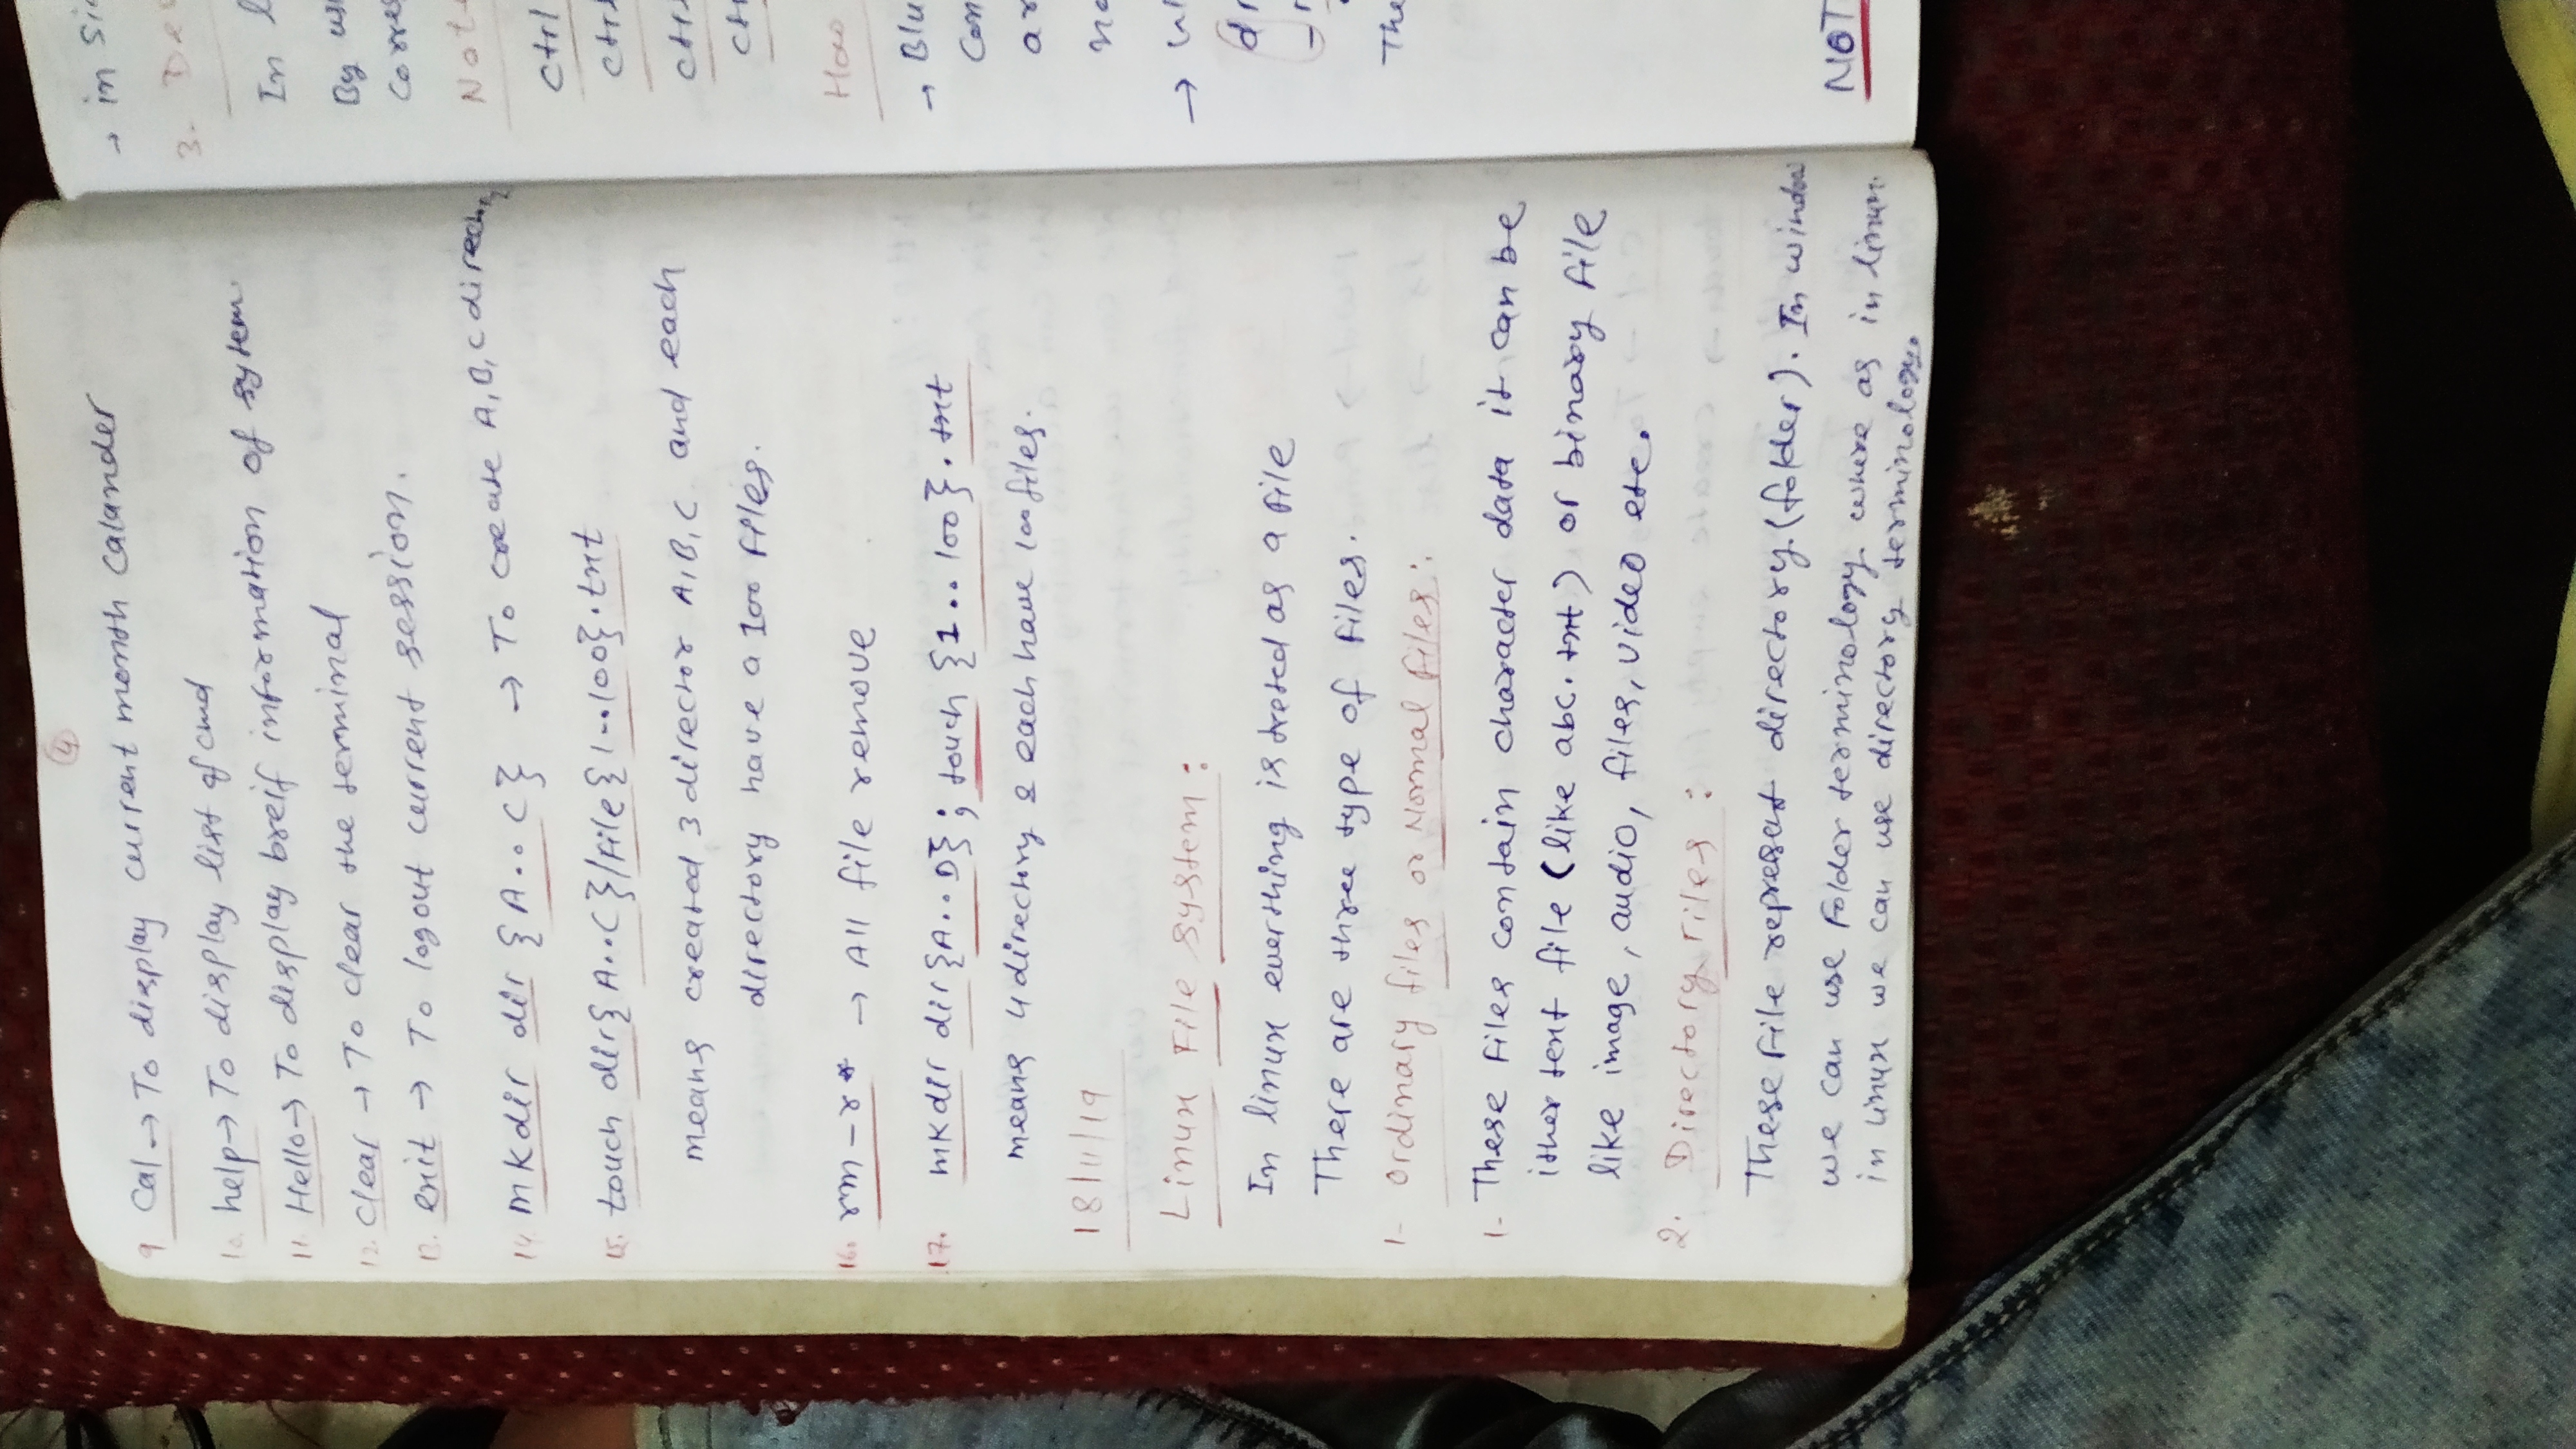 4
9 Cal → To display current month Calander
10. help → To display list of cmd
11. Hello → To display breif information of sytem.
12. Clear → To clear the terminal
13. exit → To logout current session.
14. mkdir dir {A..C} → To create A,B,C directory
15. touch dir{A..C}/file{1..100}.txt
means created 3 director A,B,C and each
directory have a 100 files.
16. rm -r * → All file remove
17. mkdir dir{A..D}; touch {1..100}.txt
means 4 directory & each have 100 files.
18/11/19
Linux File System:
In linux everthing is treted as a file
There are three type of files.
1- Ordinary files or Normal files:
1- These files contain character data it can be
ither text file (like abc.txt) or binary file
like image, audio, files, video etc.
2. Directory Files:
These file represent directory.(folder). In window
we can use Folder terminology where as in linux.
in linux we can use directory terminology.
→ in
3. De
In
By
Corre
Not
Ctrl
Ctrl
Ctrl
Ctr
How
→ Blu
Con
ar
→
The
NOT